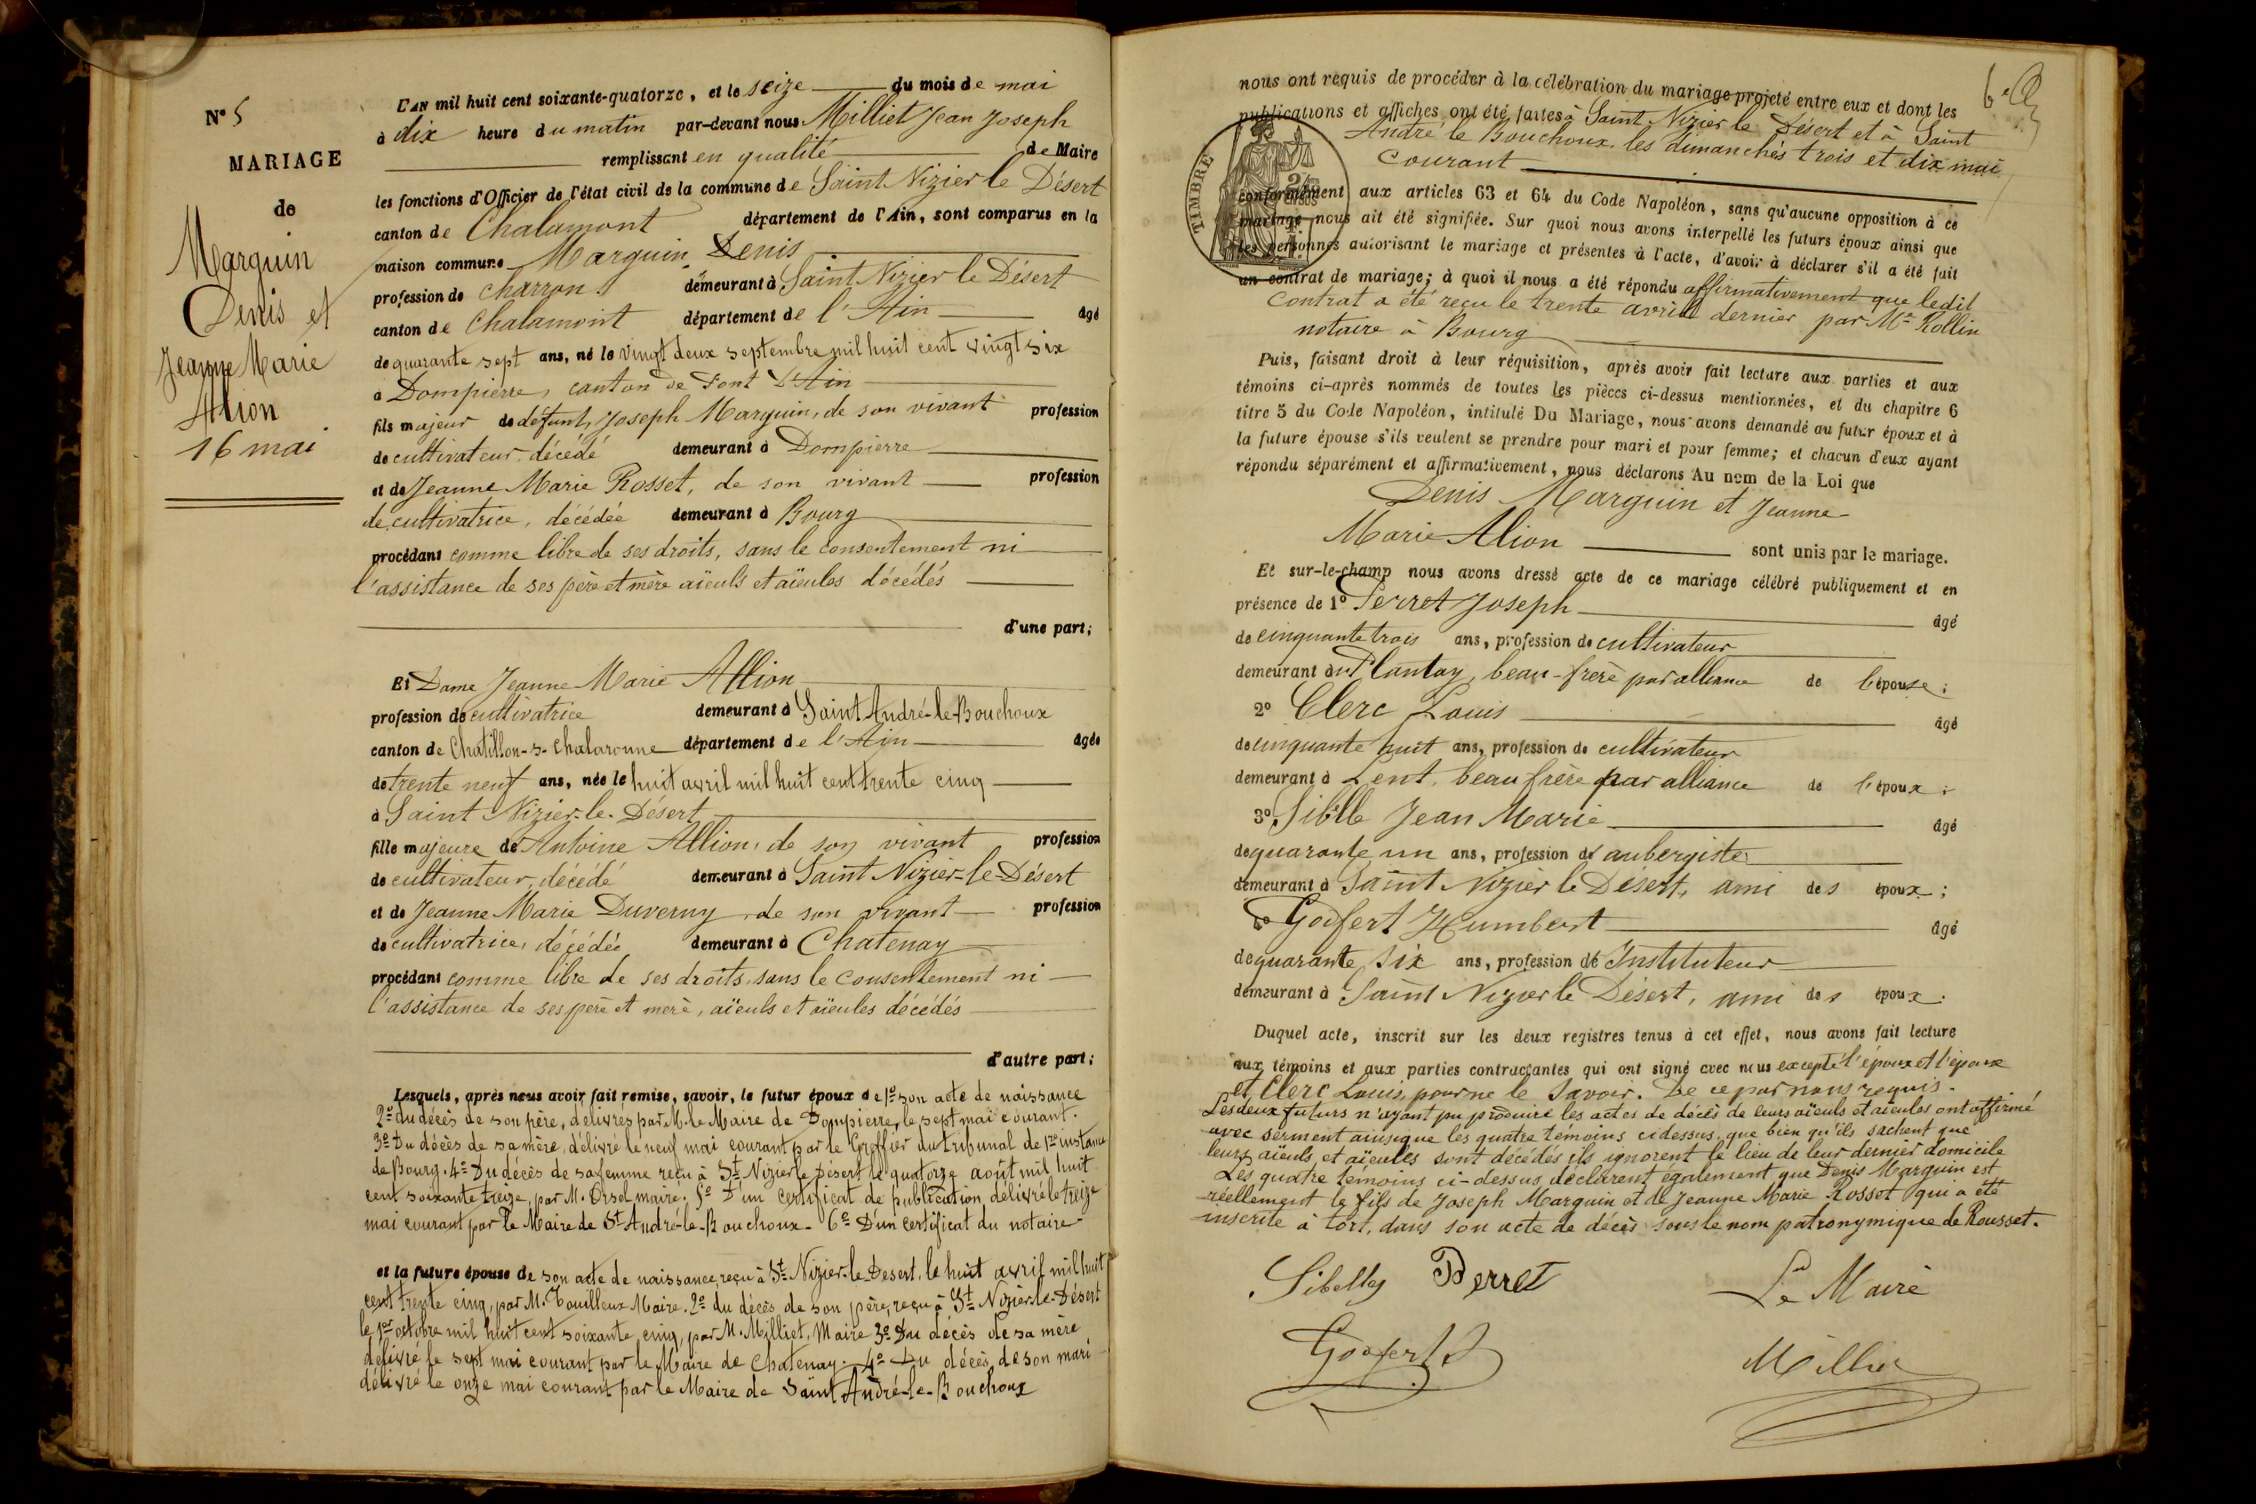 N° 5
MARIAGE
de
Marguin
Denis et
Jeanne Marie
Allion
16 mai
L'AN mil huit cent soixante-quatorze, et le seize du mois de mai
à dix heure du matin par-devant nous Milliet Jean Joseph
remplissant en qualité de Maire
les fonctions d'Officier de l'état civil de la commune de Saint Nizier le Désert
canton de Chalamont département de l'Ain, sont comparus en la
maison commune Marguin Denis
profession de charron demeurant à Saint Nizier le Désert
canton de Chalamont département de l'Ain âgé
de quarante sept ans, né le vingt deux septembre mil huit cent vingt six
à Dompierre, canton de Pont d'Ain
fils majeur de défunt, Joseph Marguin, de son vivant profession
de cultivateur décédé demeurant à Dompierre
et de Jeanne Marie Rosset, de son vivant profession
de cultivatrice, décédée demeurant à Bourg
procédant comme libre de ses droits, sans le consentement ni
l'assistance de ses père et mère aïeuls et aïeules décédés
d'une part;
Et Dame Jeanne Marie Allion
profession de cultivatrice demeurant à Saint André-le-Bouchoux
canton de Chatillon-s-Chalaronne département de l'Ain âgée
de trente neuf ans, née le huit avril mil huit cent trente cinq
à Saint Nizier-le-Désert
fille majeure de Antoine Allion, de son vivant profession
de cultivateur, décédé demeurant à Saint Nizier-le-Désert
et de Jeanne Marie Duverny, de son vivant profession
de cultivatrice, décédée demeurant à Chatenay
procédant comme libre de ses droits, sans le consentement ni
l'assistance de ses père et mère, aïeuls et aïeules décédés
d'autre part;
Lesquels, après nous avoir fait remise, savoir, le futur époux de 1° son acte de naissance
2° du décès de son père, délivrés par M. le Maire de Dompierre, le sept mai courant.
3° Du décès de sa mère, délivré le neuf mai courant par le Greffier du tribunal de 1re instance
de Bourg. 4° Du décès de sa femme reçu à St Nizier le Désert le quatorze août mil huit
cent soixante treize, par M. Orsel maire. 5° D'un certificat de publication délivré le treize
mai courant par le Maire de St André-le-Bouchoux. 6° D'un certificat du notaire
et la future épouse de son acte de naissance, reçu à St Nizier-le-Desert, le huit avril mil huit
cent trente cinq, par M. Touilleux Maire. 2° du décès de son père, reçu à St Nizier-le-Désert
le 1er octobre mil huit cent soixante cinq, par M. Milliet, Maire 3° Du décès de sa mère
délivré le sept mai courant par le Maire de Chatenay. 4° Du décès de son mari
délivré le onze mai courant par le Maire de Saint André-le-Bouchoux
nous ont requis de procéder à la célébration du mariage projeté entre eux et dont les
publications et affiches ont été faites à Saint Nizier le Désert et à Saint
André le Bouchoux, les dimanches trois et dix mai
courant
TIMBRE
conformément aux articles 63 et 64 du Code Napoléon, sans qu'aucune opposition à ce
mariage nous ait été signifiée. Sur quoi nous avons interpellé les futurs époux ainsi que
les personnes autorisant le mariage et présentes à l'acte, d'avoir à déclarer s'il a été fait
un contrat de mariage; à quoi il nous a été répondu affirmativement que ledit
contrat a été reçu le trente avril dernier par Me Rollin
notaire à Bourg
Puis, faisant droit à leur réquisition, après avoir fait lecture aux parties et aux
témoins ci-après nommés de toutes les pièces ci-dessus mentionnées, et du chapitre 6
titre 5 du Code Napoléon, intitulé Du Mariage, nous avons demandé au futur époux et à
la future épouse s'ils veulent se prendre pour mari et pour femme; et chacun d'eux ayant
répondu séparément et affirmativement, nous déclarons Au nom de la Loi que
Denis Marguin et Jeanne
Marie Alion sont unis par le mariage.
Et sur-le-champ nous avons dressé acte de ce mariage célébré publiquement et en
présence de 1° Perret Joseph âgé
de cinquante trois ans, profession de cultivateur
demeurant au Plantay, beau-frère par alliance de l'épouse;
2° Clerc Louis âgé
de cinquante huit ans, profession de cultivateur
demeurant à Lent, beau frère par alliance de l'époux;
3° Sibille Jean Marie âgé
de quarante un ans, profession d'aubergiste
demeurant à Saint Nizier le Désert, ami des époux;
4° Godfert Humbert âgé
de quarante six ans, profession d'Instituteur
demeurant à Saint Nizier le Désert, ami des époux.
Duquel acte, inscrit sur les deux registres tenus à cet effet, nous avons fait lecture
aux témoins et aux parties contractantes qui ont signé avec nous excepté l'époux et l'épouse
et Clerc Louis, pour ne le savoir. De ce par nous requis.
Les deux futurs n'ayant pu produire les actes de décès de leurs aïeuls et aïeules ont affirmé
avec serment ainsi que les quatre témoins ci dessus, que bien qu'ils sachent que
leurs aïeuls et aïeules sont décédés ils ignorent le lieu de leur dernier domicile
Les quatre témoins ci-dessus déclarent également que Denis Marguin est
réellement le fils de Joseph Marguin et de Jeanne Marie Rosset qui a été
inscrite à tort, dans son acte de décès sous le nom patronymique de Rousset.
Sibelle Perret Le Maire
Godfert Milliet